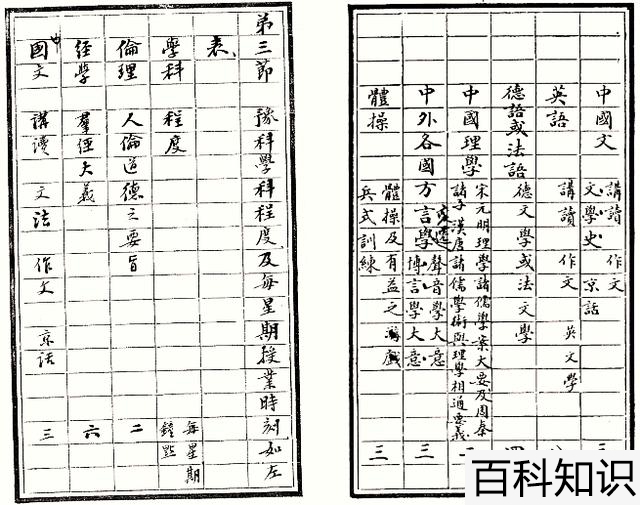 中國文 講讀 作文
文學史 京話
英語 講讀 作文 英文學
德語或法語 德文學或法文學
中國理學 宋元明理學諸儒學案大要及周秦
諸子漢唐諸儒學術與理學相通要義
中外各國方言學 聲音學大意
博言學大意 三
體操 體操及有益之游戲
兵式訓練 三
第三節 豫科學科程度及每星期授業時刻如左
表
學科 程度 每星期
鐘點
倫理 人倫道德之要旨 二
經學 羣經大義 六
中國文 講讀 文法 作文 京話 三
百科知识